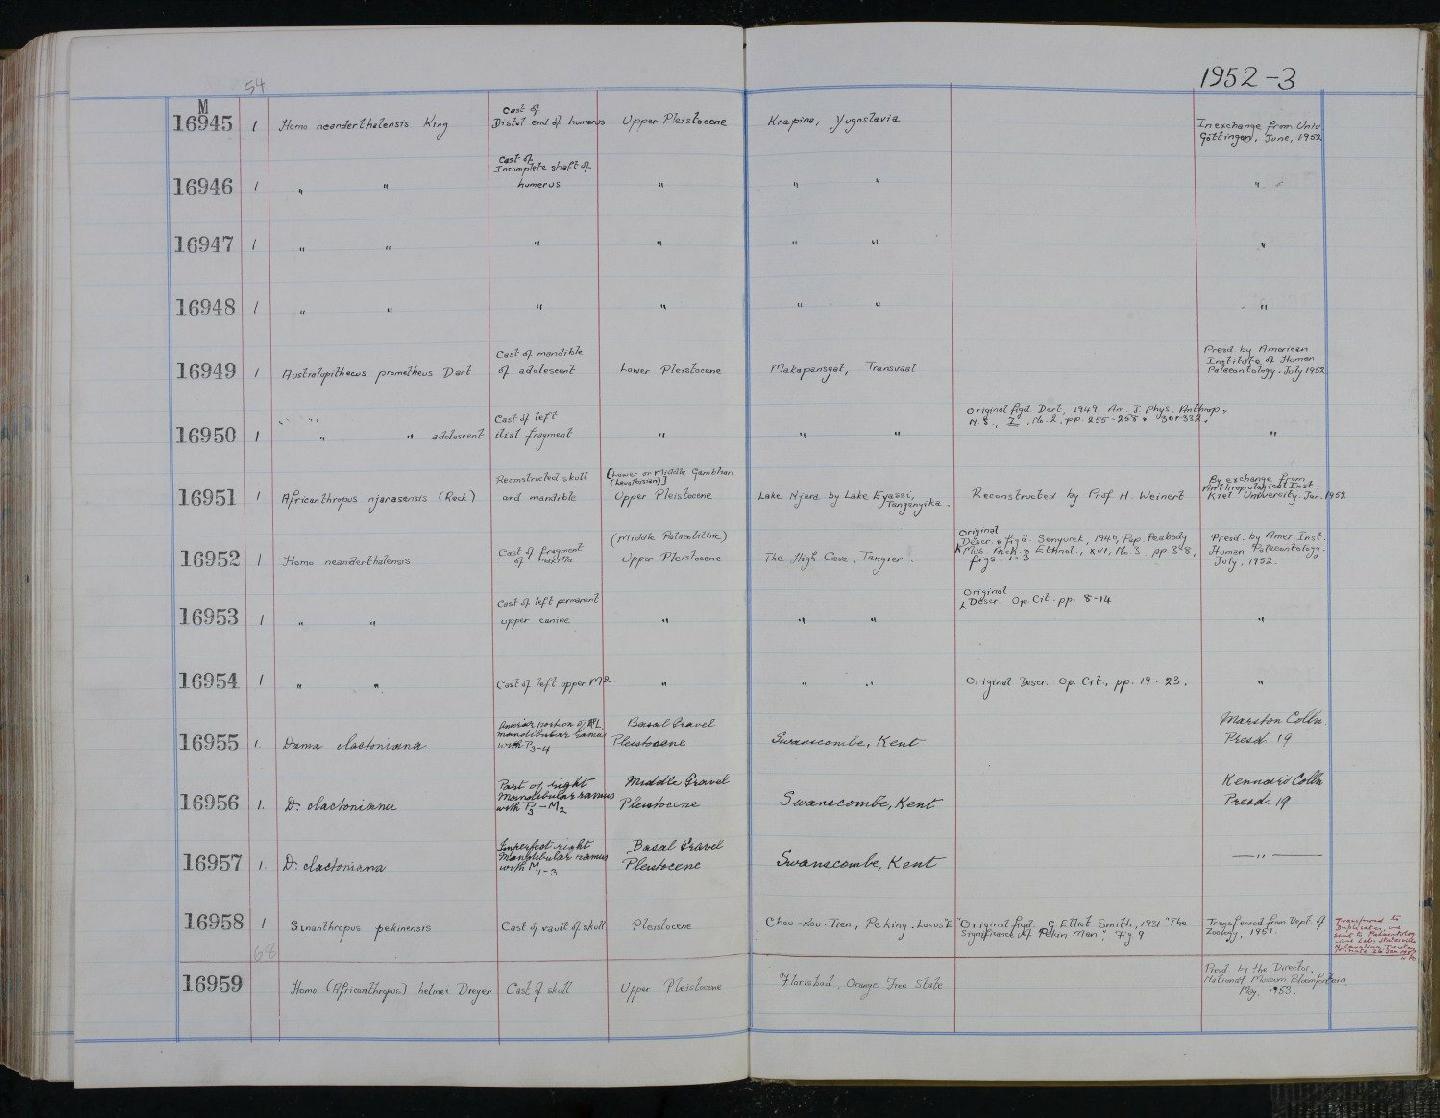 54
1952-3
M
16945 1 Homo neanderthalensis King Cast of Distal end of humerus Upper Pleistocene Krapina, Yugoslavia In exchange from Univ Göttingen, June, 1952
16946 1 " " Cast of Incomplete shaft of humerus " " " "
16947 1 " " " " " " "
16948 1 " " " " " " "
16949 1 Australopithecus prometheus Dart Cast of mandible of adolescent Lower Pleistocene Makapansgat, Transvaal Presd by American Institute of Human Palaeontology. July 1952
16950 1 " " adolescent Cast of left iliac fragment " " " Original figd Dart, 1949 Am. J. Phys. Anthrop, N.S., 7. No. 2, pp. 255-258 & 301-332. "
16951 1 Africanthropus njarasensis (Reck) Reconstructed skull and mandible (Lower or Middle Gamblian (Levalloisian)) Upper Pleistocene Lake Njara by Lake Eyassi, Tanganyika. Reconstructed by Prof H. Weinert By exchange from Anthropological Inst. Kiel University. Jan. 1952
16952 1 Homo neanderthalensis Cast of fragment of maxilla (Middle Palaeolithic) Upper Pleistocene The High Cave, Tangier. Original Descr. & figd. Senyurek, 1940, Pap. Peabody Mus. Arch. & Ethnol., XVI, No. 3 pp 3-8, figs. 1-3 Presd. by Amer Inst. Human Palaeontology. July, 1952.
16953 1 " " Cast of left permanent upper canine " " " Original Descr. Op. Cit. pp. 8-14 "
16954 1 " " Cast of left upper M2 " " " Original Descr. Op. Cit., pp. 19-23. "
16955 1. Dama clactoniana Anterior portion of L mandibular ramus with P3-4 Basal Gravel Pleistocene Swanscombe, Kent Marston Colln. Presd. 19
16956 1. D. clactoniana Part of right Mandibular ramus with P3-M2 Middle Gravel Pleistocene Swanscombe, Kent Kennard Colln Presd. 19
16957 1. D. clactoniana Imperfect right Mandibular ramus with M1-3 Basal Gravel Pleistocene Swanscombe, Kent — " —
16958 1 Sinanthropus pekinensis Cast of vault of skull Pleistocene Chou-Kou-Tien, Peking. Locus E "Original figd. G Elliot Smith, 1931 "The Significance of Pekin Man", Fig 9 Transferred from Dept. of Zoology, 1951. Transferred to Duplicates, and sent to Palaeontology
68
16959 Homo (Africanthropus) helmei Dreyer Cast of skull Upper Pleistocene Florisbad, Orange Free State Presd by the Director, National Museum Bloemfontein. May, 1953.